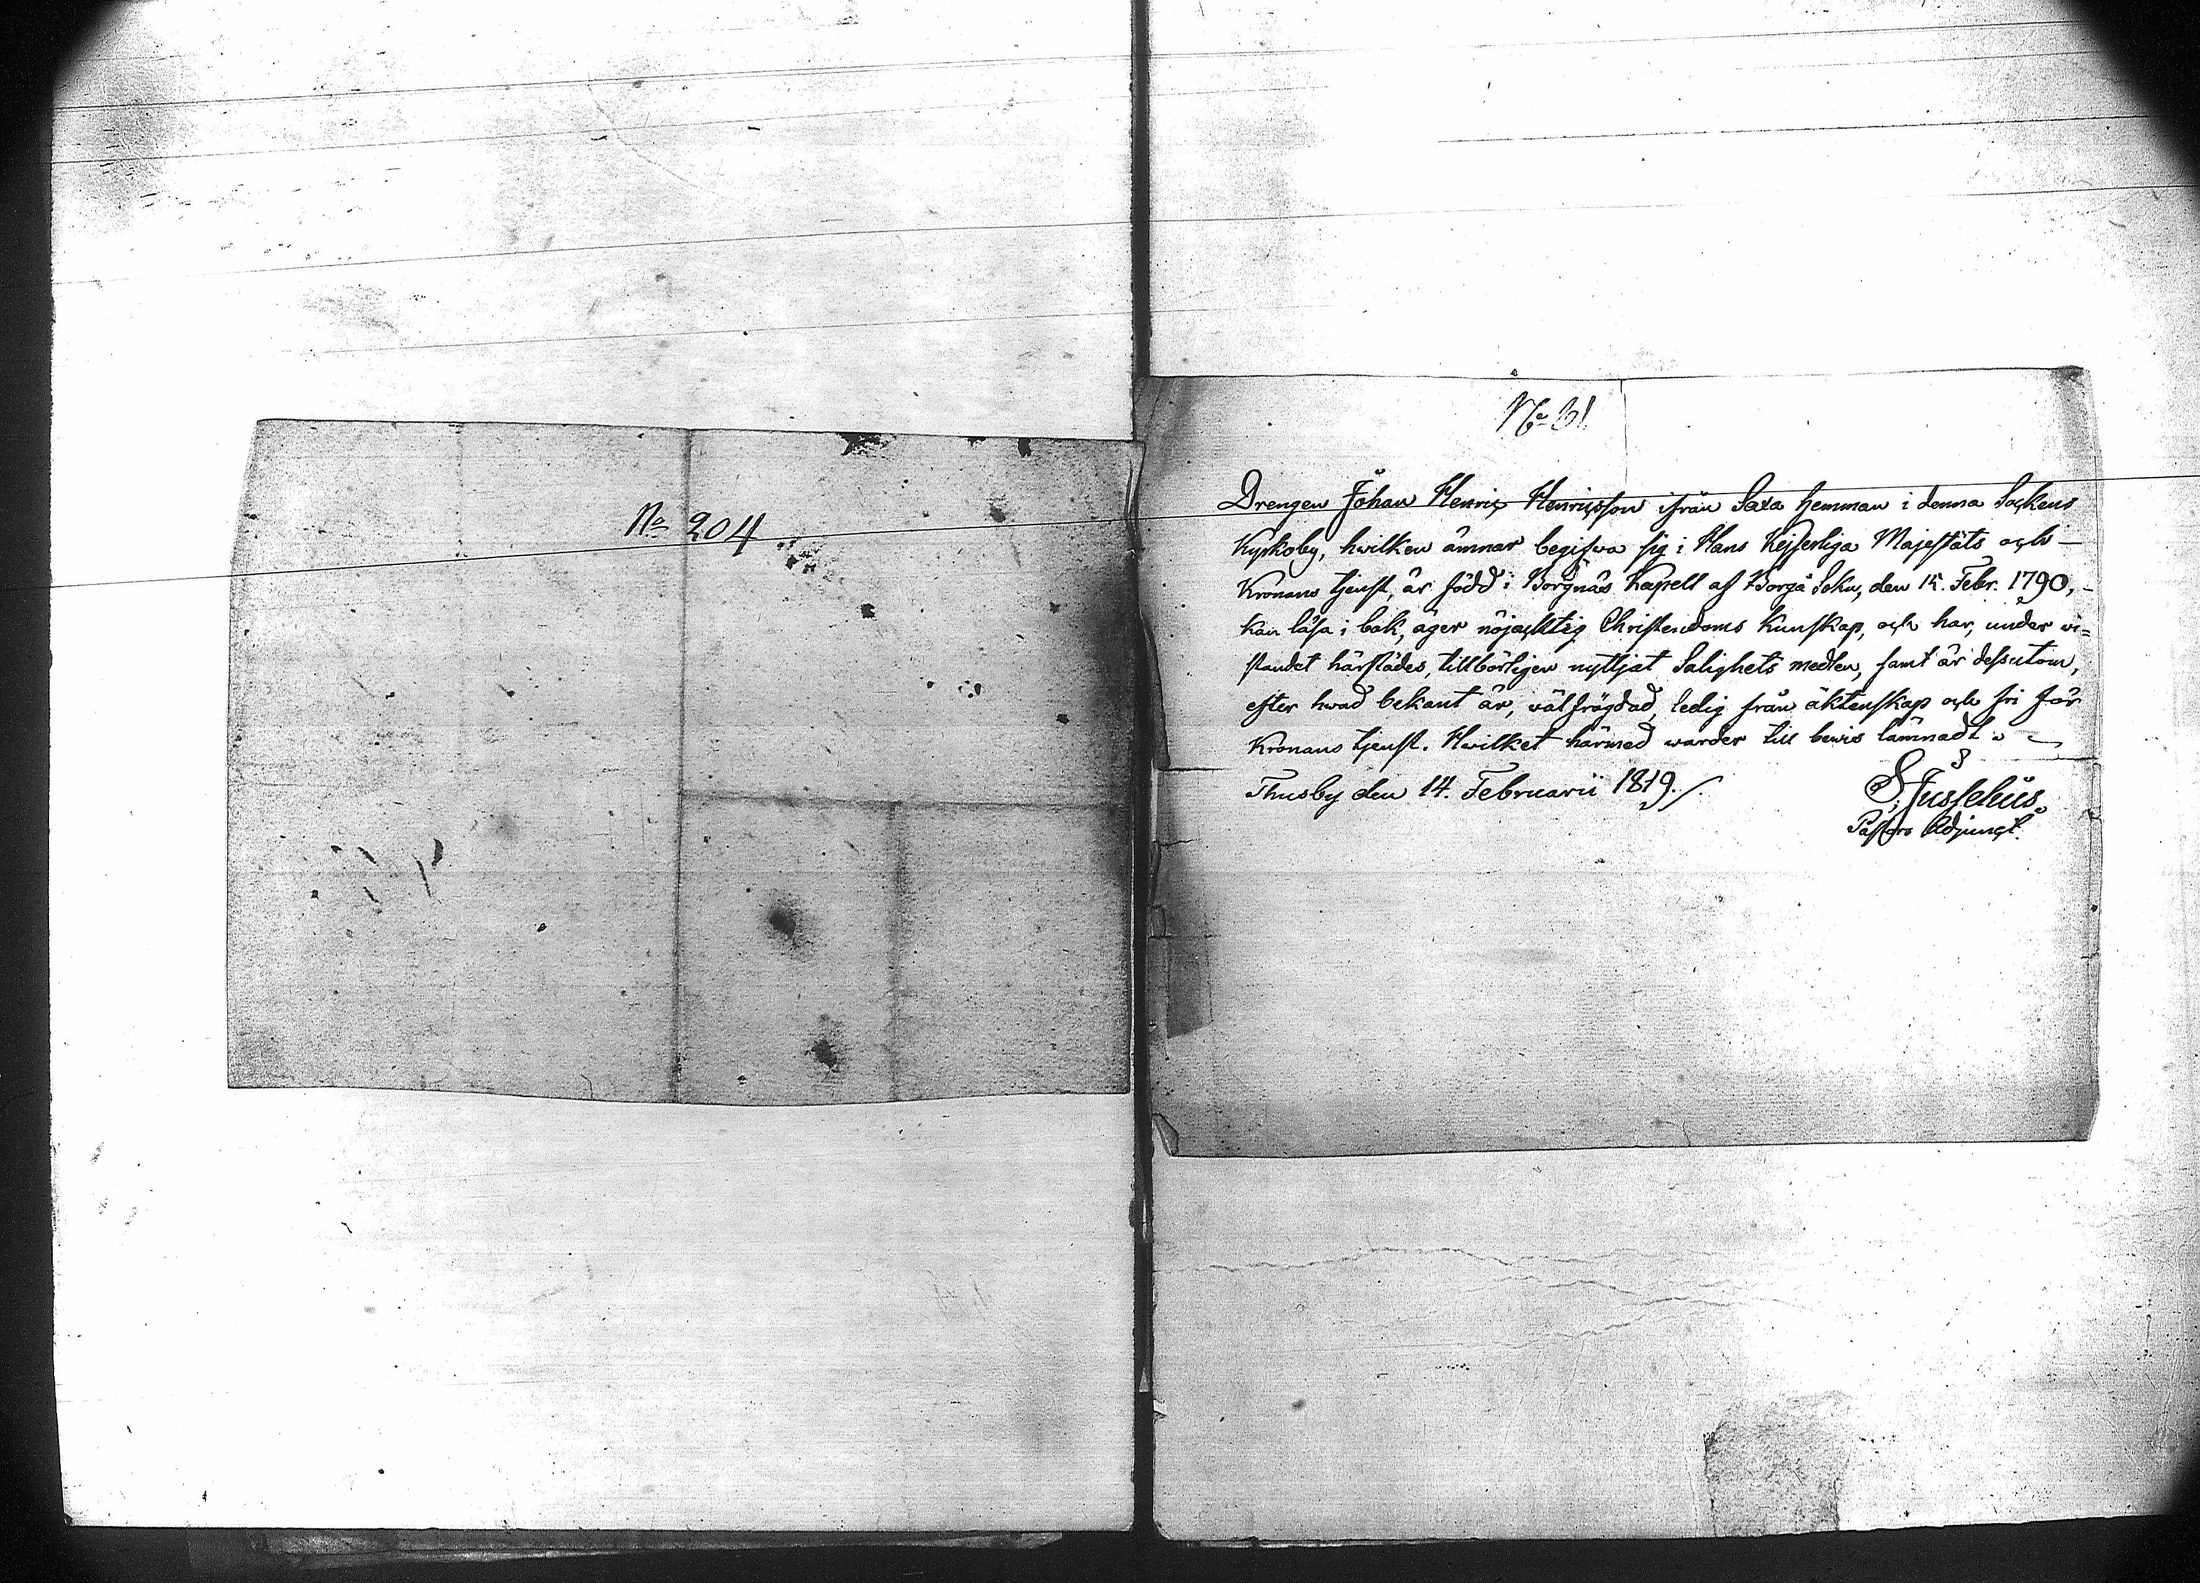 No 204
No 61.
Drengen Johan Henric Henricsson ifrån Saxa hemman i denna Sockens
Kyrkoby, hwilken ämnar begifwa sig i Hans Kejserliga Majestäts och
Kronans tjenst, är född i Borgnäs Kapell af Borgå Sokn, den 15. Febr. 1790,
kan läsa i bok, äger nöjacktig Christendoms Kunskap, och har, under wi=
standet härstädes, tillbörligen nyttjat Salighets medlen, samt är dessutom,
efter hwad bekant är, wälfrägdad, ledig från äktenskap och fri för
Kronans tjenst. Hwilket härmed warder till bewis lämnadt.
Thusby den 14. Februarii 1819.
Pastors Adjunct.